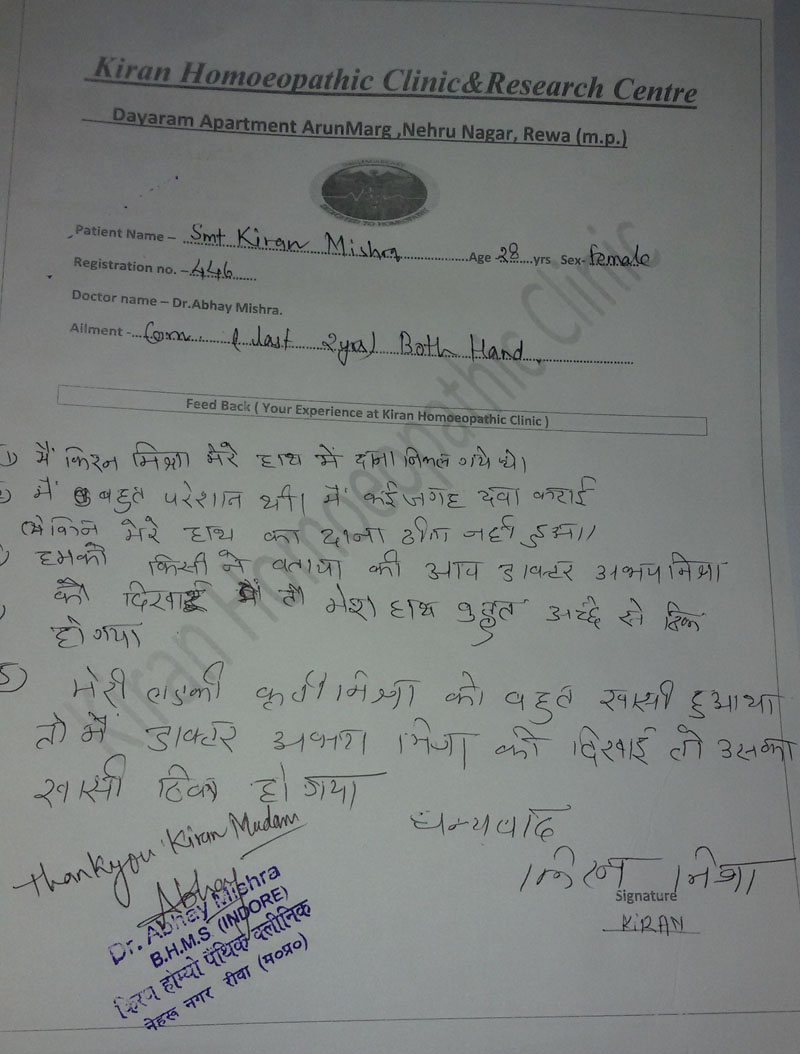 Kiran Homoeopathic Clinic&Research Centre
Dayaram Apartment ArunMarg ,Nehru Nagar, Rewa (m.p.)
Patient Name – Smt Kiran Mishra Age -28 yrs Sex- female
Registration no. – 446
Doctor name – Dr.Abhay Mishra.
Ailment - Corn (last 2yrs) Both Hand
Feed Back ( Your Experience at Kiran Homoeopathic Clinic )
Kiran Homoeopathic Clinic
1) मैं किरन मिश्रा मेरे हाथ में दाना निकल गये थे।
मैं बहुत परेशान थी। मैं कई जगह दवा कराई
लेकिन मेरे हाथ का दाना ठीक नहीं हुआ।
हमको किसी ने बताया की आप डाक्टर अभय मिश्रा
को दिखाई तो मेरा हाथ बहुत अच्छे से ठिक
हो गया
5) मेरी लडकी कृती मिश्रा को बहुत खासी हुआ था
तो मैं डाक्टर अभय मिश्रा को दिखाई तो उसका
खासी ठिक हो गया
धन्यवाद
Thankyou Kiran Madam
किरन मिश्रा
Signature
KIRAN
Abhay
Dr. Abhay Mishra
B.H.M.S. (INDORE)
किरन होम्यो पैथिक क्लीनिक
नेहरू नगर रीवा (म०प्र०)